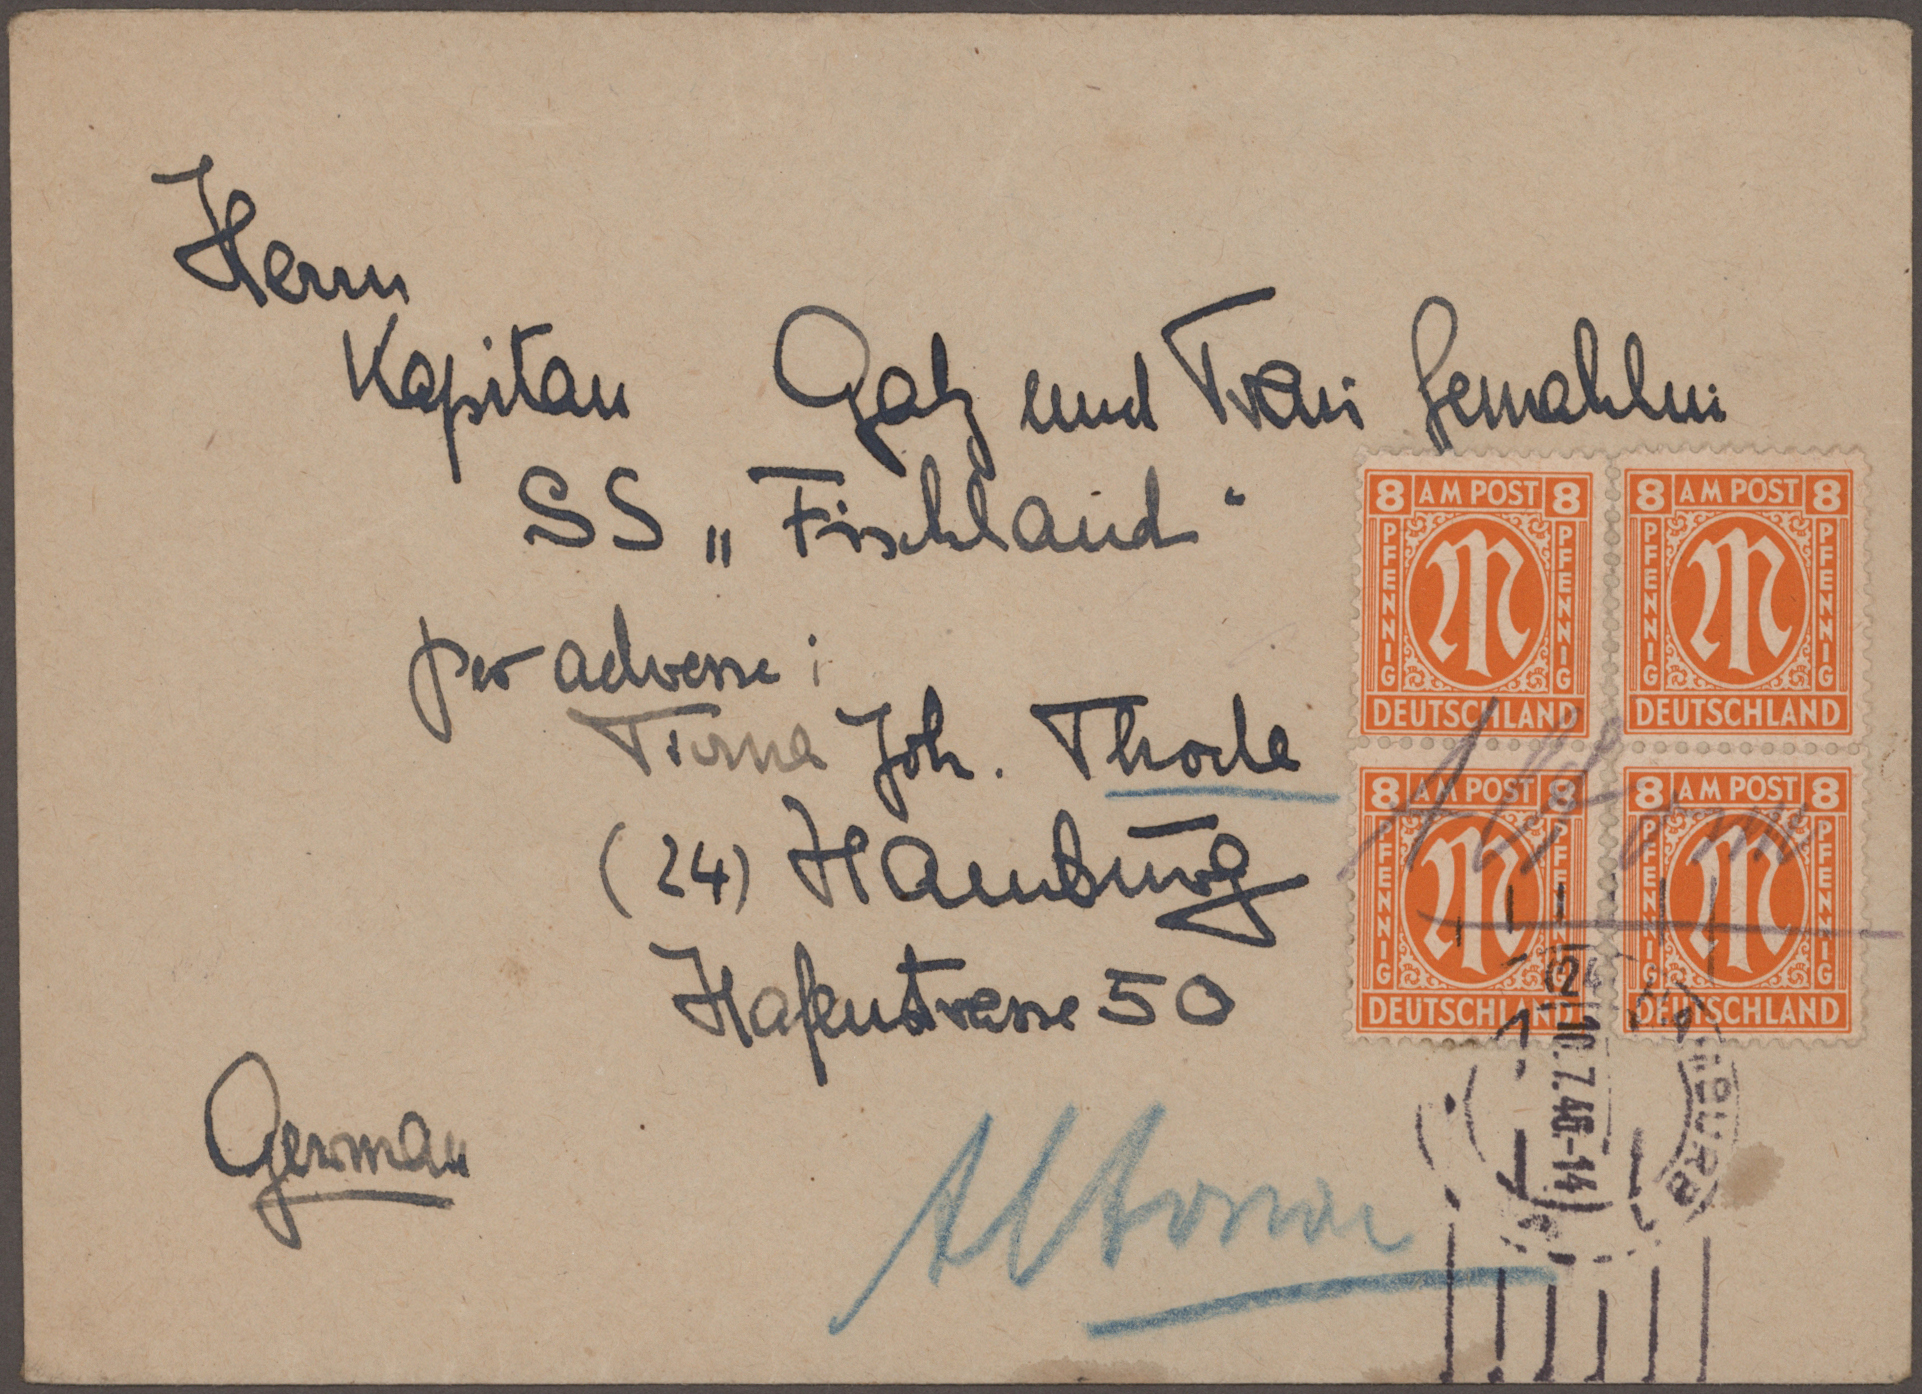 Herrn
Kapitan Gatz und Frau Gemahlin
SS „Fischland“
per adresse:
Firma Joh. Thode
(24) Hamburg
Hafenstrasse 50
German
Altona
8 AM POST 8
PFENNIG PFENNIG
DEUTSCHLAND
8 AM POST 8
PFENNIG PFENNIG
DEUTSCHLAND
8 AM POST 8
PFENNIG PFENNIG
DEUTSCHLAND
8 AM POST 8
PFENNIG PFENNIG
DEUTSCHLAND
Altona
(24)
10.7.46.-14